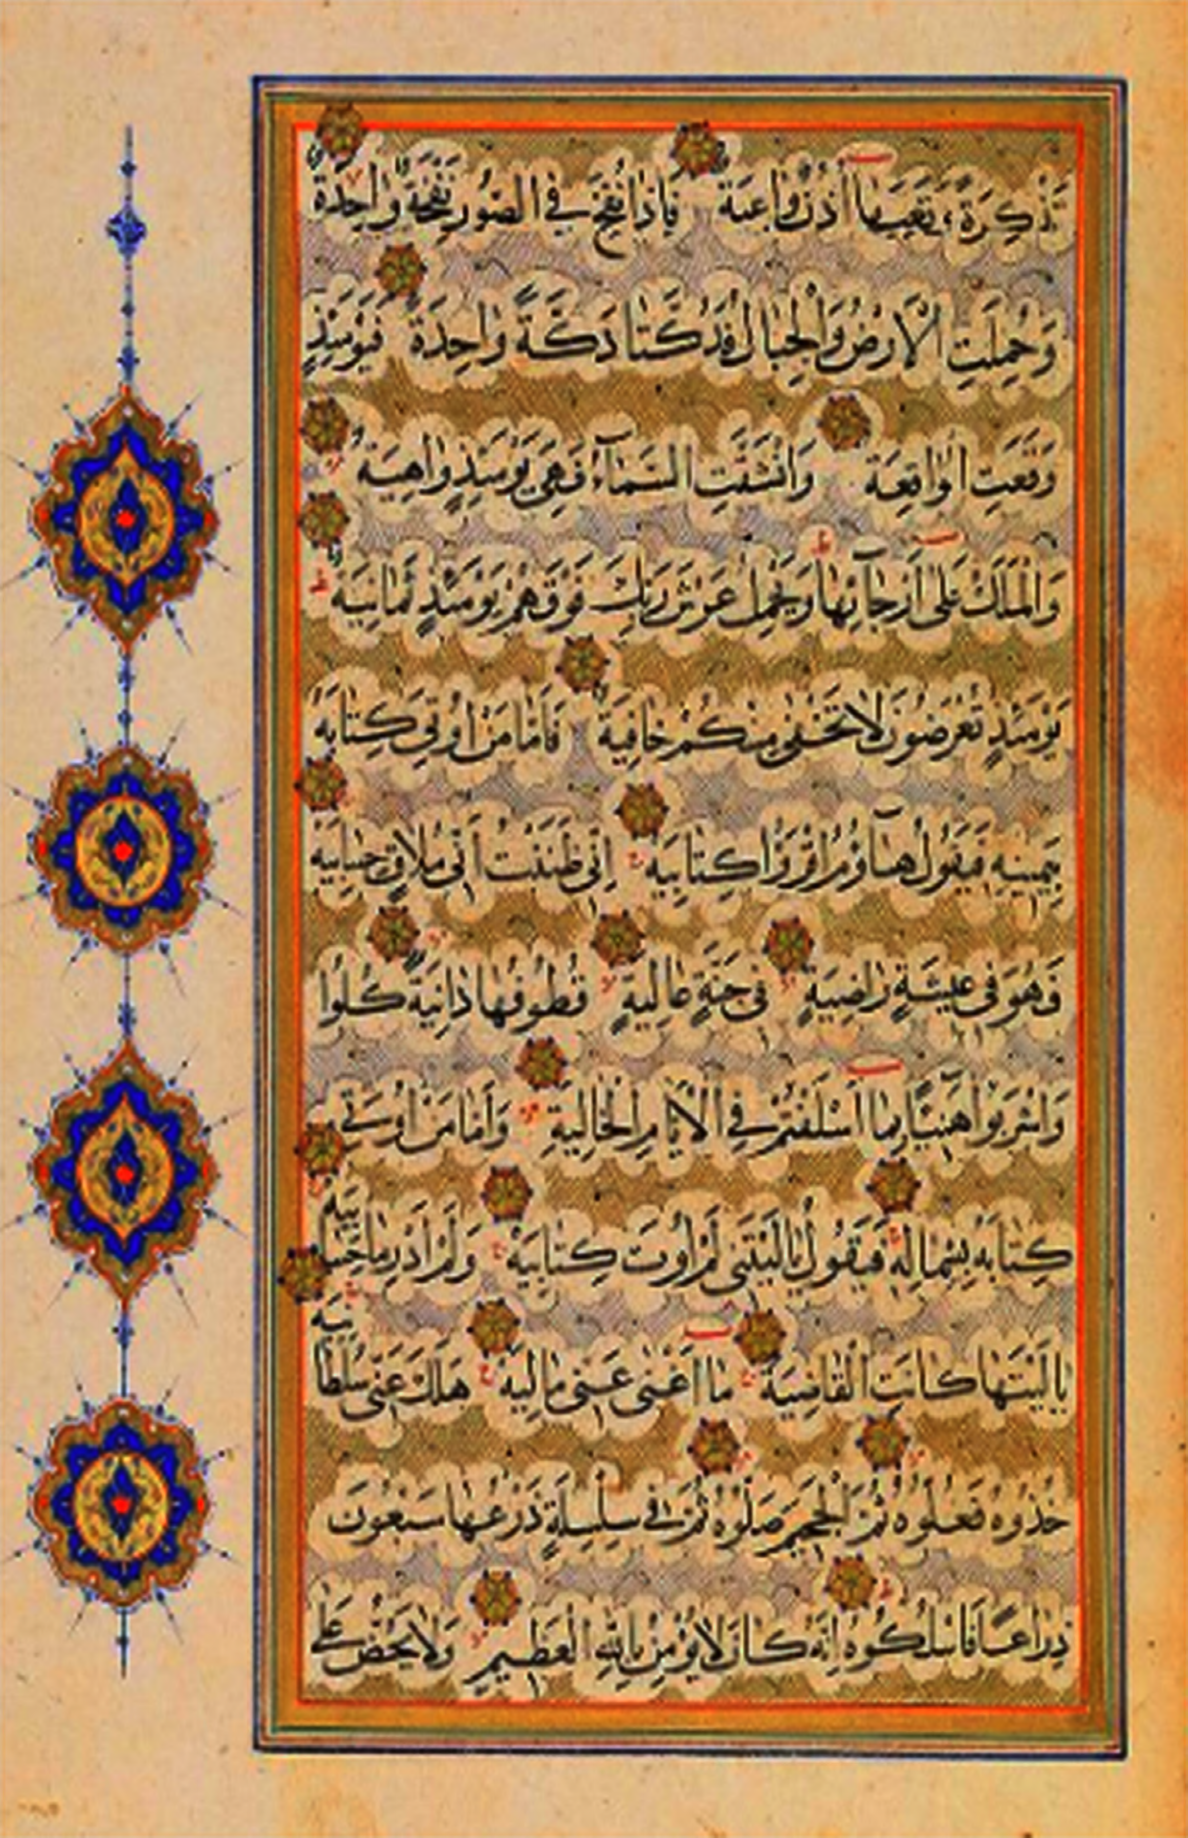 تَذْكِرَةً وَتَعِيَهَا أُذُنٌ وَاعِيَةٌ فَإِذَا نُفِخَ فِي الصُّورِ نَفْخَةٌ وَاحِدَةٌ
وَحُمِلَتِ الْأَرْضُ وَالْجِبَالُ فَدُكَّتَا دَكَّةً وَاحِدَةً فَيَوْمَئِذٍ
وَقَعَتِ الْوَاقِعَةُ وَانْشَقَّتِ السَّمَاءُ فَهِيَ يَوْمَئِذٍ وَاهِيَةٌ
وَالْمَلَكُ عَلَى أَرْجَائِهَا وَيَحْمِلُ عَرْشَ رَبِّكَ فَوْقَهُمْ يَوْمَئِذٍ ثَمَانِيَةٌ
يَوْمَئِذٍ تُعْرَضُونَ لَا تَخْفَى مِنْكُمْ خَافِيَةٌ فَأَمَّا مَنْ أُوتِيَ كِتَابَهُ
بِيَمِينِهِ فَيَقُولُ هَاؤُمُ اقْرَؤُا كِتَابِيَهْ إِنِّي ظَنَنْتُ أَنِّي مُلَاقٍ حِسَابِيَهْ
فَهُوَ فِي عِيشَةٍ رَاضِيَةٍ فِي جَنَّةٍ عَالِيَةٍ قُطُوفُهَا دَانِيَةٌ كُلُوا
وَاشْرَبُوا هَنِيئًا بِمَا أَسْلَفْتُمْ فِي الْأَيَّامِ الْخَالِيَةِ وَأَمَّا مَنْ أُوتِيَ
كِتَابَهُ بِشِمَالِهِ فَيَقُولُ يَا لَيْتَنِي لَمْ أُوتَ كِتَابِيَهْ وَلَمْ أَدْرِ مَا حِسَابِيَهْ
يَا لَيْتَهَا كَانَتِ الْقَاضِيَةَ مَا أَغْنَى عَنِّي مَالِيَهْ هَلَكَ عَنِّي سُلْطَانِيَهْ
خُذُوهُ فَغُلُّوهُ ثُمَّ الْجَحِيمَ صَلُّوهُ ثُمَّ فِي سِلْسِلَةٍ ذَرْعُهَا سَبْعُونَ
ذِرَاعًا فَاسْلُكُوهُ إِنَّهُ كَانَ لَا يُؤْمِنُ بِاللَّهِ الْعَظِيمِ وَلَا يَحُضُّ عَلَى